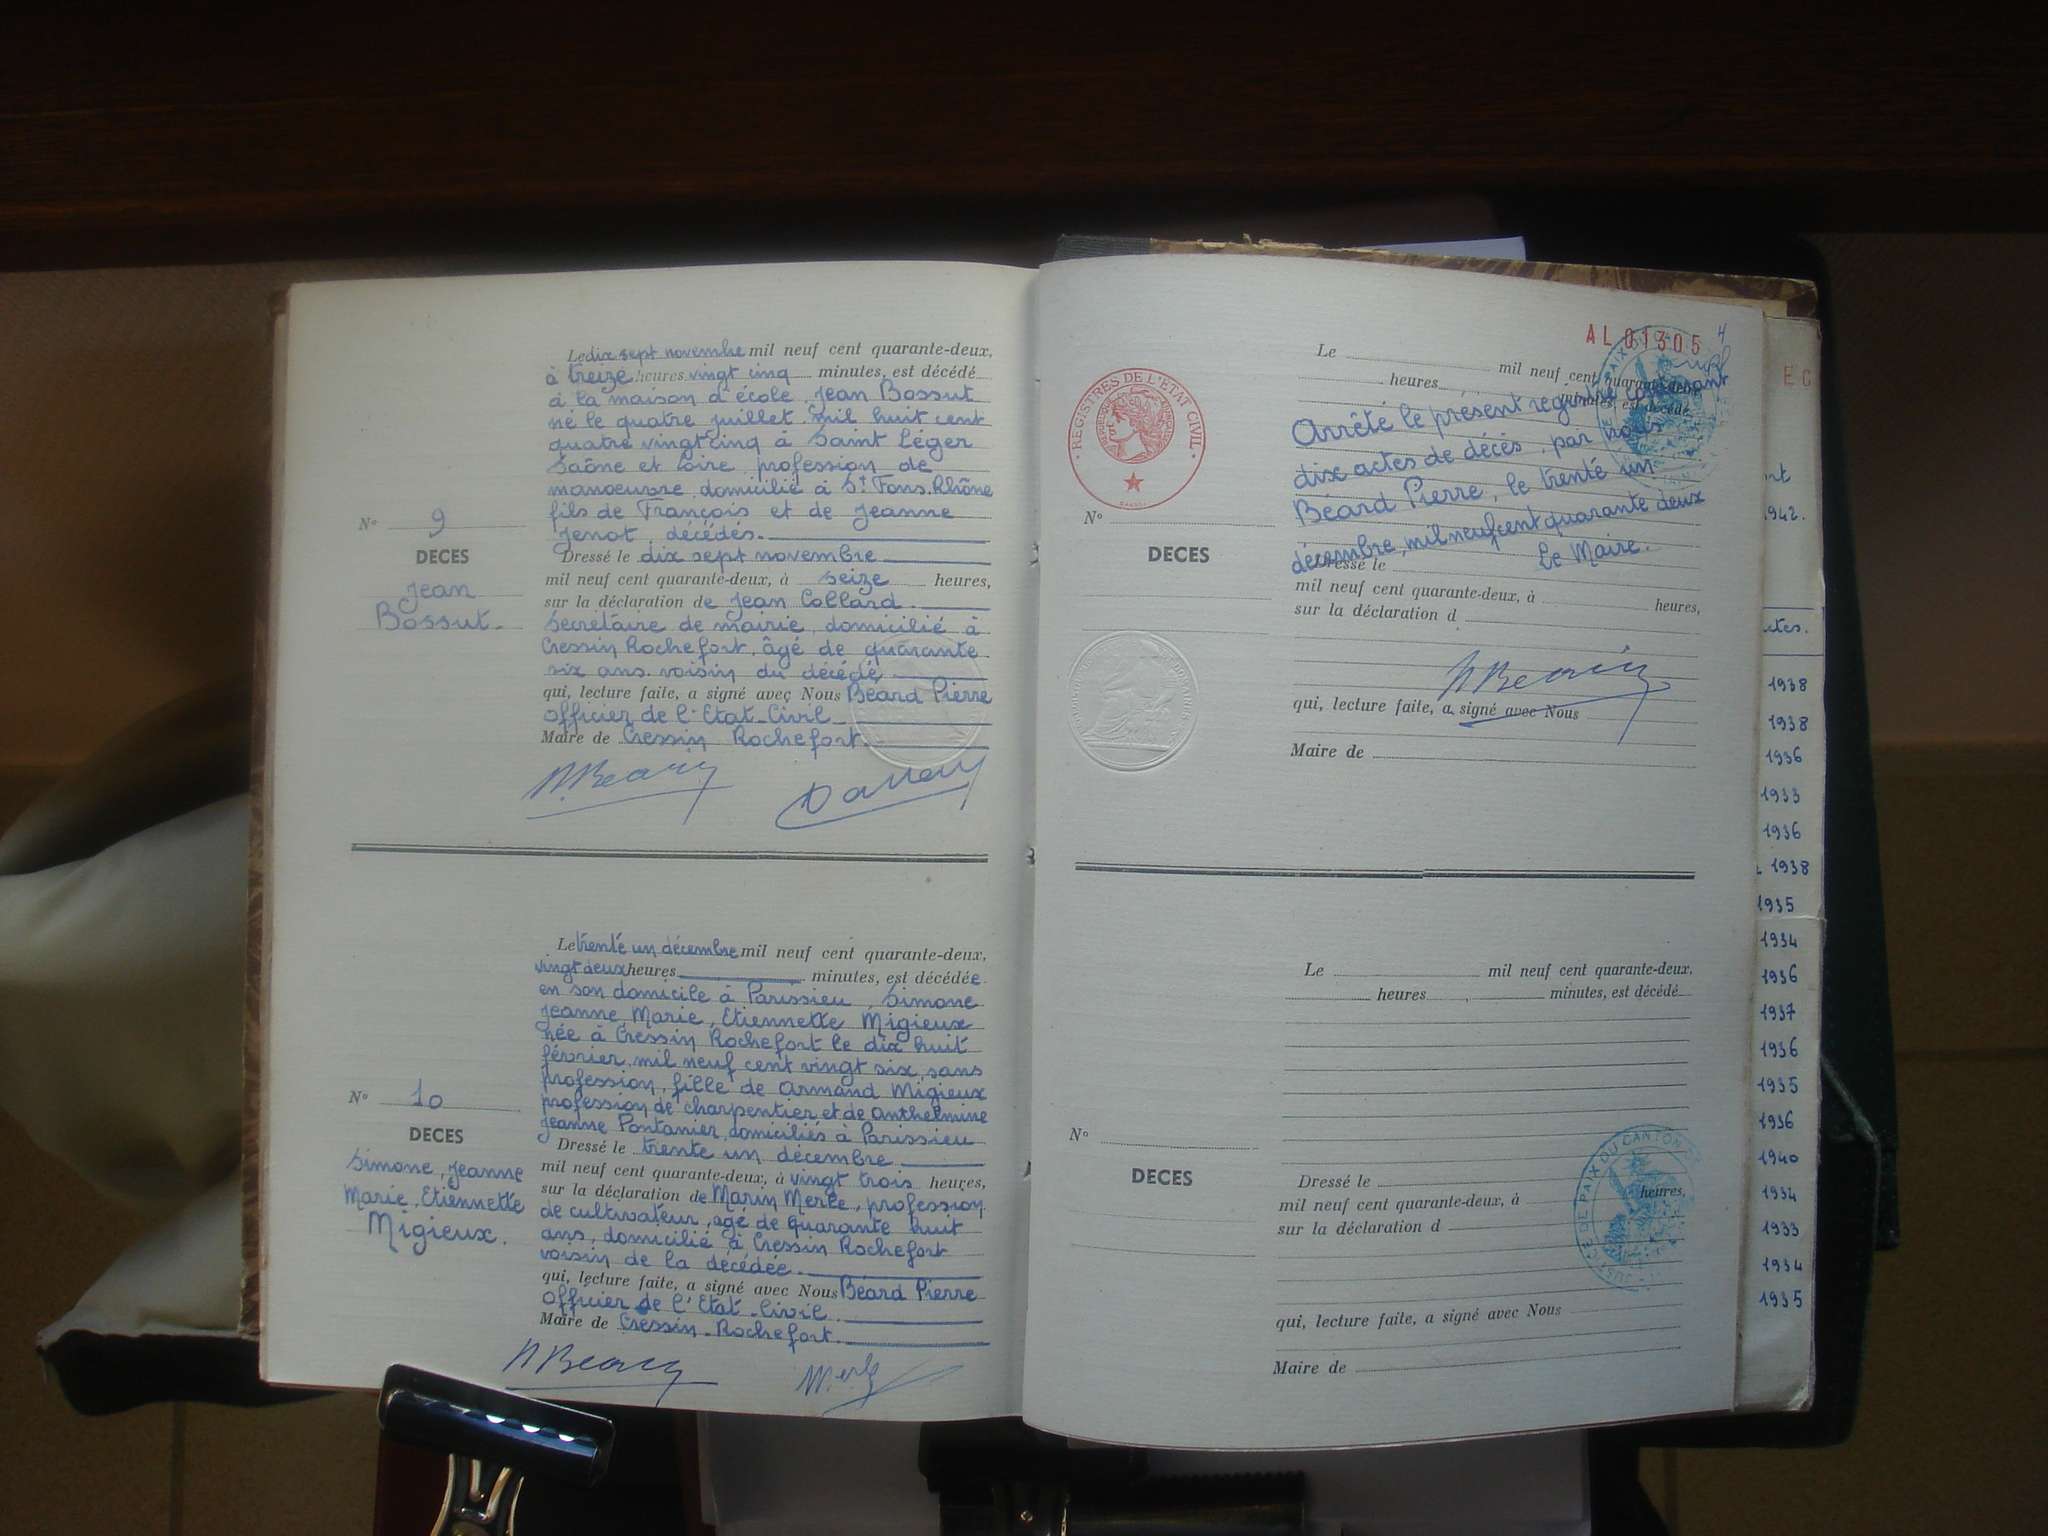 Le dix sept novembre mil neuf cent quarante-deux,
à treize heures vingt cinq minutes, est décédé
à la maison d'école, Jean Bossut
né le quatre juillet mil huit cent
quatre vingt cinq à Saint Léger
Saône et Loire, profession de
manoeuvre, domicilié à St Fons, Rhône
fils de François et de Jeanne
Jenot, décédés.
Nº 9
DECES
Jean
Bossut.
Dressé le dix sept novembre
mil neuf cent quarante-deux, à seize heures,
sur la déclaration de Jean Collard.
Secrétaire de mairie, domicilié à
Cressin Rochefort, âgé de quarante
six ans voisin du décédé
qui, lecture faite, a signé avec Nous Béard Pierre
Officier de l'Etat-Civil
Maire de Cressin Rochefort.
Le trente un décembre mil neuf cent quarante-deux,
vingt deux heures minutes, est décédée
en son domicile à Parissieu, Simone
Jeanne Marie, Etiennette Migieux
née à Cressin Rochefort le dix huit
février, mil neuf cent vingt six, sans
profession, fille de Armand Migieux
profession de charpentier et de Anthelmine
Jeanne Pontanier, domiciliés à Parissieu
Nº 10
DECES
Simone, Jeanne
Marie, Etiennette
Migieux.
Dressé le trente un décembre
mil neuf cent quarante-deux, à vingt trois heures,
sur la déclaration de Marin Merle, profession
de cultivateur, agé de quarante huit
ans, domicilié à Cressin Rochefort
voisin de la décédée.
qui, lecture faite, a signé avec Nous Béard Pierre
Officier de l'Etat-Civil
Maire de Cressin-Rochefort.
AL 01305
4
REGISTRES DE L'ETAT CIVIL
Le mil neuf cent quarante-deux,
heures minutes, est décédé
Arrêté le présent registre contenant
dix actes de décès, par nous
Béard Pierre, le trente un
décembre, mil neuf cent quarante deux
Le Maire.
Nº
DECES
Dressé le
mil neuf cent quarante-deux, à heures,
sur la déclaration d
qui, lecture faite, a signé avec Nous
Maire de
Le mil neuf cent quarante-deux,
heures minutes, est décédé
Nº
DECES
Dressé le
mil neuf cent quarante-deux, à heures,
sur la déclaration d
JUSTICE DE PAIX DU CANTON
qui, lecture faite, a signé avec Nous
Maire de
EC
1942.
1938
1938
1936
1933
1936
1938
1935
1934
1936
1937
1936
1935
1936
1940
1934
1933
1934
1935